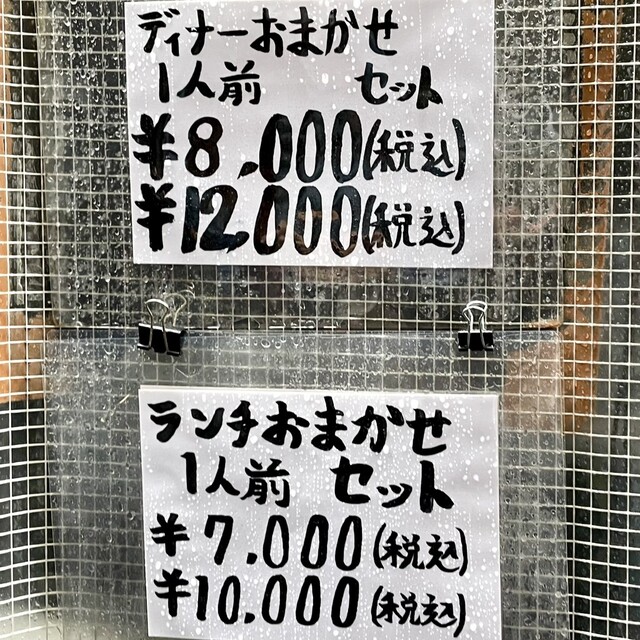 ディナーおまかせ
1人前 セット
¥8,000(税込)
¥12,000(税込)
ランチおまかせ
1人前 セット
¥7,000(税込)
¥10,000(税込)